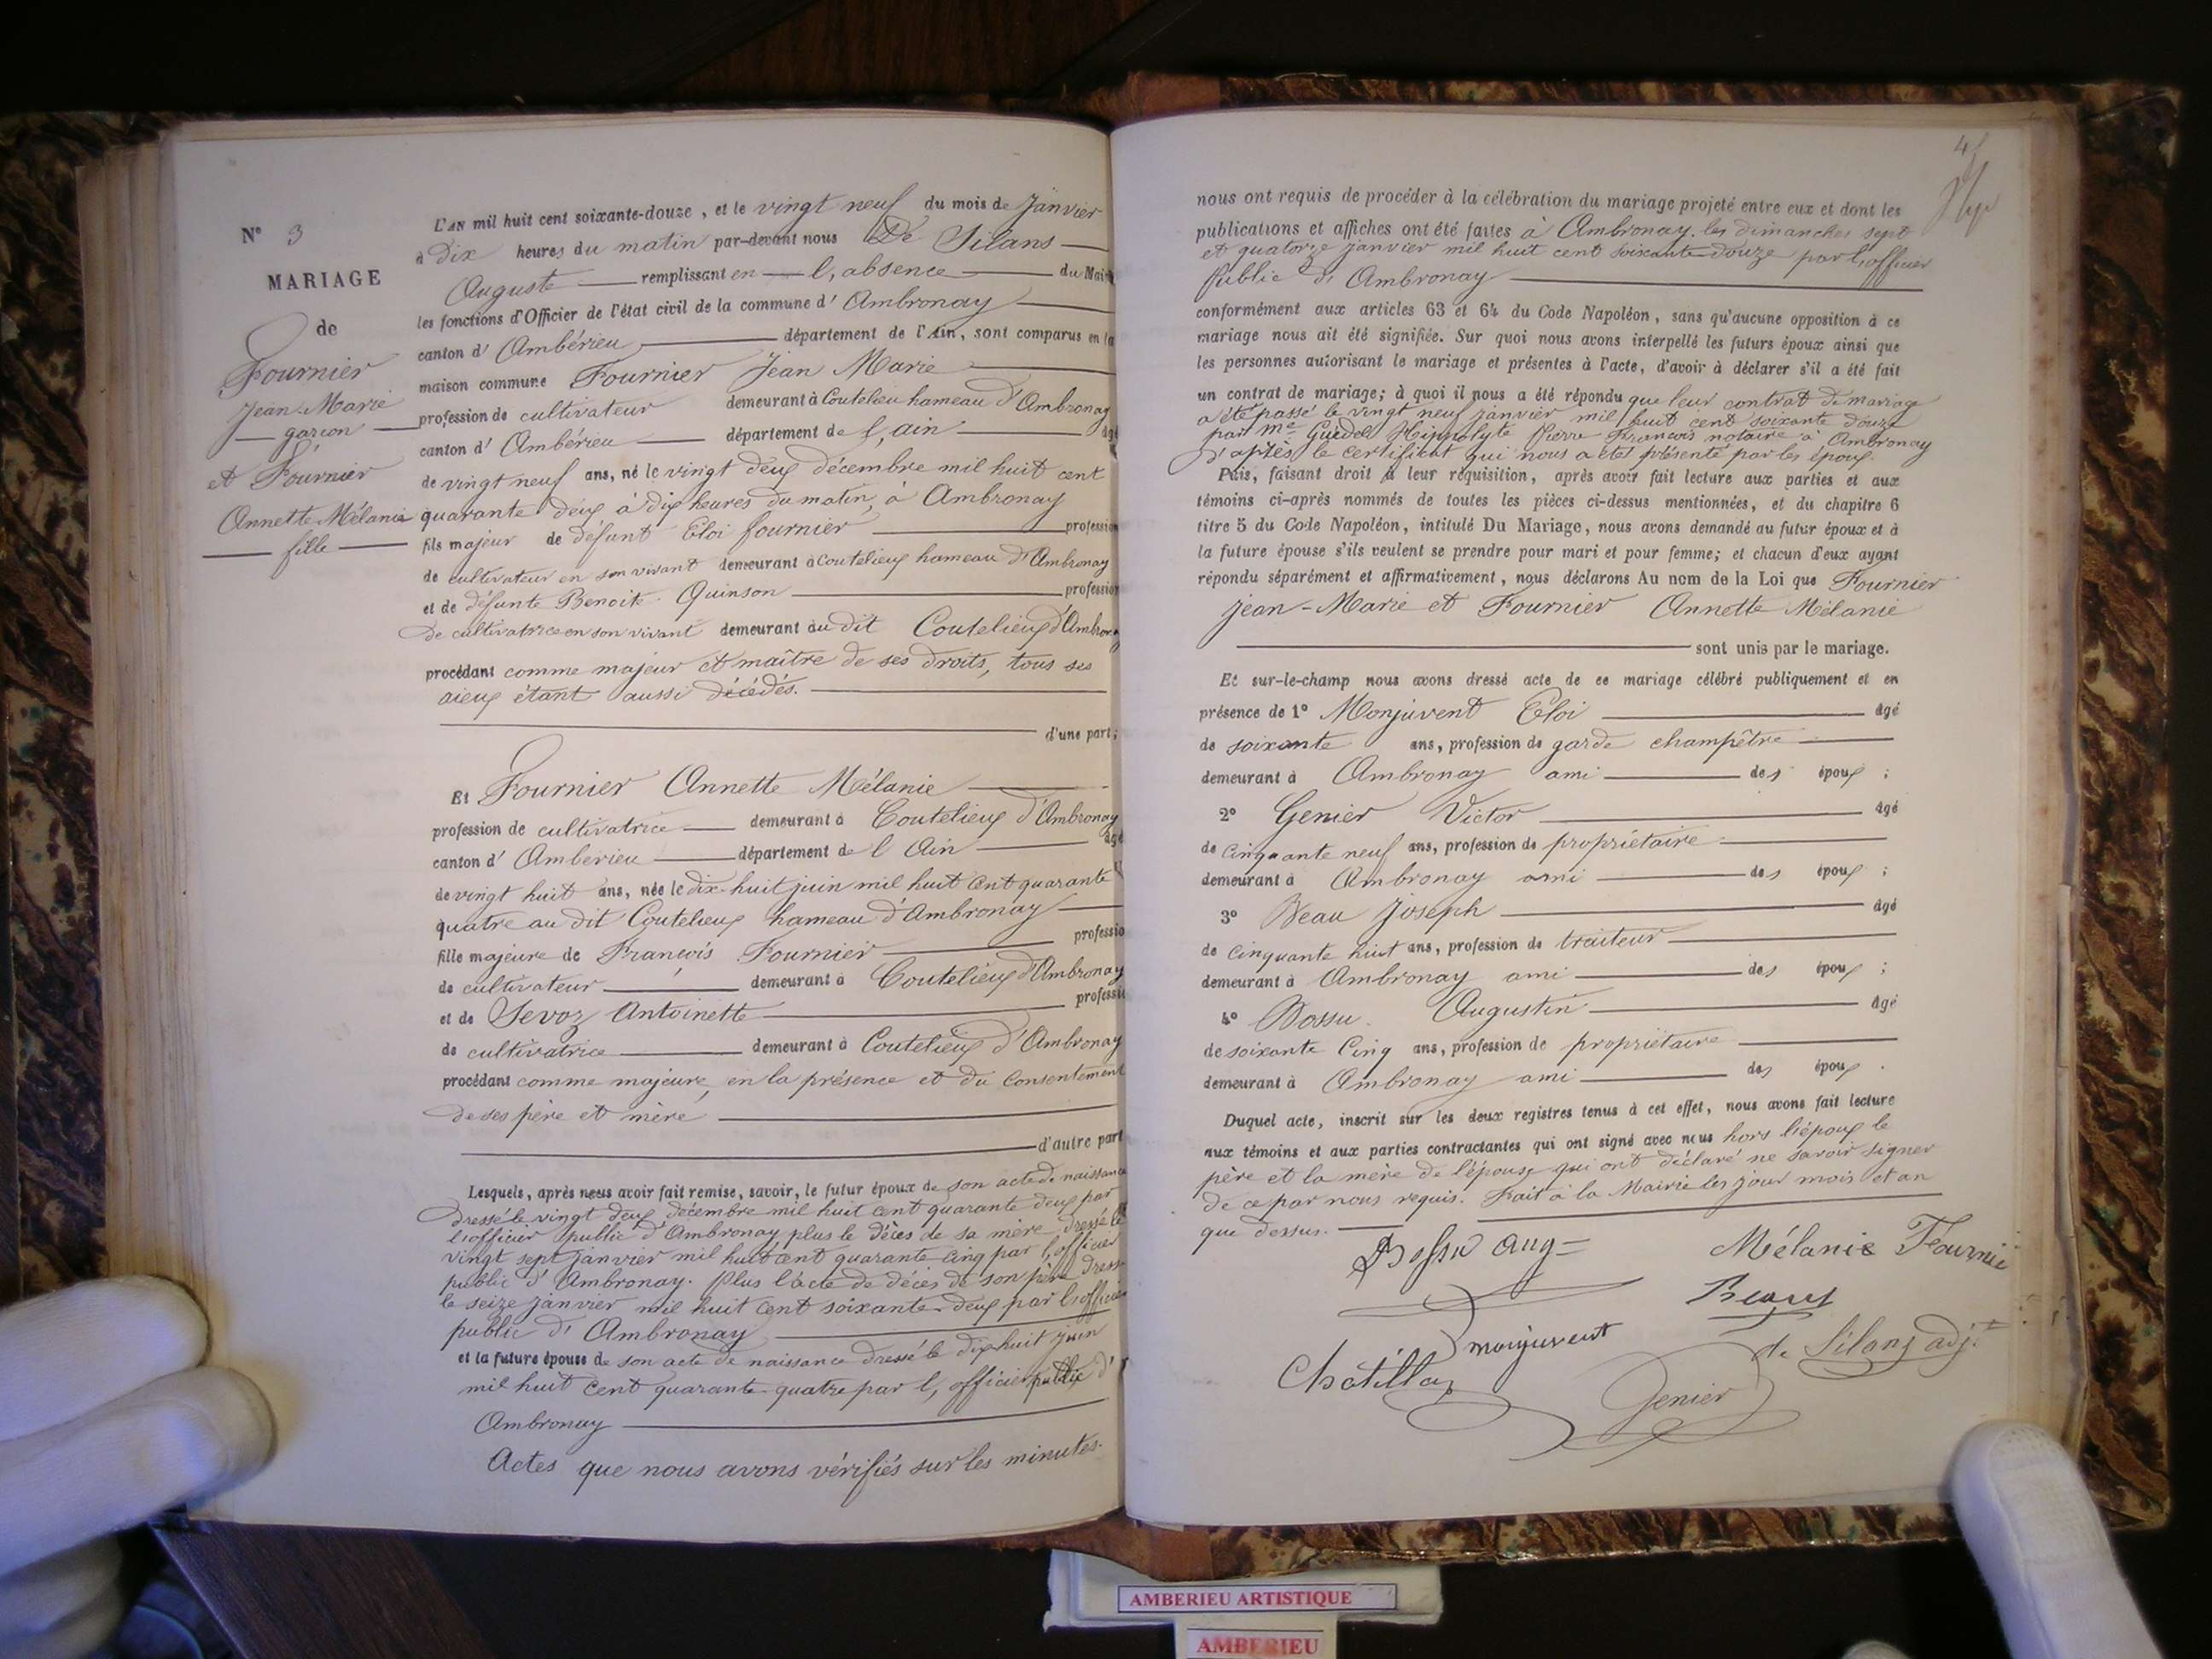 N° 3
MARIAGE
de
Fournier
Jean-Marie
garçon
et Fournier
Annette Mélanie
fille
L'AN mil huit cent soixante-douze, et le vingt neuf du mois de Janvier
à dix heures du matin par-devant nous De Silans
Auguste remplissant en l'absence du Mai
les fonctions d'Officier de l'état civil de la commune d'Ambronay
canton d'Ambérieu département de l'Ain, sont comparus en la
maison commune Fournier Jean Marie
profession de cultivateur demeurant à Coutelieu hameau d'Ambronay
canton d'Ambérieu département de l'ain âgé
de vingt neuf ans, né le vingt deux décembre mil huit cent
quarante deux à dix heures du matin, à Ambronay
fils majeur de défunt Eloi fournier profession
de cultivateur en son vivant demeurant à Coutelieux hameau d'Ambronay
et de défunte Benoite Quinson profession
de cultivatrice en son vivant demeurant au dit Coutelieux d'Ambronay
procédant comme majeur et maître de ses droits, tous ses
aieux étant aussi décédés.
d'une part;
Et Fournier Annette Mélanie
profession de cultivatrice demeurant à Coutelieux d'Ambronay
canton d'Ambérieu département de l'Ain âgé
de vingt huit ans, née le dix-huit juin mil huit cent quarante
quatre au dit Coutelieux hameau d'Ambronay
fille majeure de François Fournier professio
de cultivateur demeurant à Coutelieux d'Ambronay
et de Sevoz Antoinette professi
de cultivatrice demeurant à Coutelieux d'Ambronay
procédant comme majeure, en la présence et du consentement
de ses père et mère
d'autre part
Lesquels, après nous avoir fait remise, savoir, le futur époux de son acte de naissance
dressé le vingt deux décembre mil huit cent quarante deux par
l'officier public d'Ambronay plus le décès de sa mère dressé le
vingt sept janvier mil huit cent quarante cinq par l'officier
public d'Ambronay. Plus l'acte de décès de son père dress
le seize janvier mil huit cent soixante-deux par l'officier
public d'Ambronay
et la future épouse de son acte de naissance dressé le dix huit juin
mil huit cent quarante-quatre par l'officier public d'
Ambronay
Actes que nous avons vérifiés sur les minutes.
4
nous ont requis de procéder à la célébration du mariage projeté entre eux et dont les
publications et affiches ont été faites à Ambronay, les dimanches sept
et quatorze janvier mil huit cent soixante-douze par l'officier
Public d'Ambronay
conformément aux articles 63 et 64 du Code Napoléon, sans qu'aucune opposition à ce
mariage nous ait été signifiée. Sur quoi nous avons interpellé les futurs époux ainsi que
les personnes autorisant le mariage et présentes à l'acte, d'avoir à déclarer s'il a été fait
un contrat de mariage; à quoi il nous a été répondu que leur contrat de mariage
a été passé le vingt neuf janvier mil huit cent soixante douze
par Me Guedel Hippolyte Pierre François notaire à Ambronay
d'après le certificat qui nous a été présenté par les époux.
Puis, faisant droit à leur réquisition, après avoir fait lecture aux parties et aux
témoins ci-après nommés de toutes les pièces ci-dessus mentionnées, et du chapitre 6
titre 5 du Code Napoléon, intitulé Du Mariage, nous avons demandé au futur époux et à
la future épouse s'ils veulent se prendre pour mari et pour femme; et chacun d'eux ayant
répondu séparément et affirmativement, nous déclarons Au nom de la Loi que Fournier
Jean-Marie et Fournier Annette Mélanie
sont unis par le mariage.
Et sur-le-champ nous avons dressé acte de ce mariage célébré publiquement et en
présence de 1° Monjuvent Eloi âgé
de soixante ans, profession de garde champêtre
demeurant à Ambronay ami des époux;
2° Genier Victor âgé
de cinquante neuf ans, profession de propriétaire
demeurant à Ambronay ami des époux;
3° Beau Joseph âgé
de cinquante huit ans, profession de traiteur
demeurant à Ambronay ami des époux;
4° Bossu Augustin âgé
de soixante cinq ans, profession de propriétaire
demeurant à Ambronay ami des époux.
Duquel acte, inscrit sur les deux registres tenus à cet effet, nous avons fait lecture
aux témoins et aux parties contractantes qui ont signé avec nous hors l'époux le
père et la mère de l'épouse qui ont déclaré ne savoir signer
de ce par nous requis. Fait à la Mairie les jour mois et an
que dessus.
Bossu Aug= Mélanie Fournié
Beaut
monjuvent de Silans adjt
Chatillon Genier
AMBERIEU ARTISTIQUE
AMBERIEU